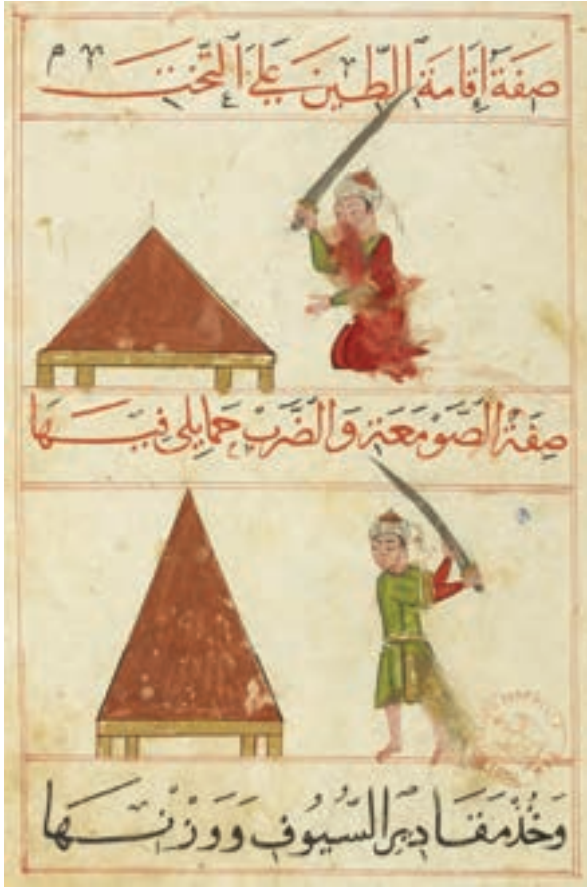 صِفَةُ إِقَامَةِ الطِّينِ عَلَى التَّخْتِ
صِفَةُ الصَّوْمَعَةِ وَالضَّرْبِ حَمَايِلِي فِيهَا
وَخُذْ مَقَادِيرَ السُّيُوفِ وَوَزْنَهَا